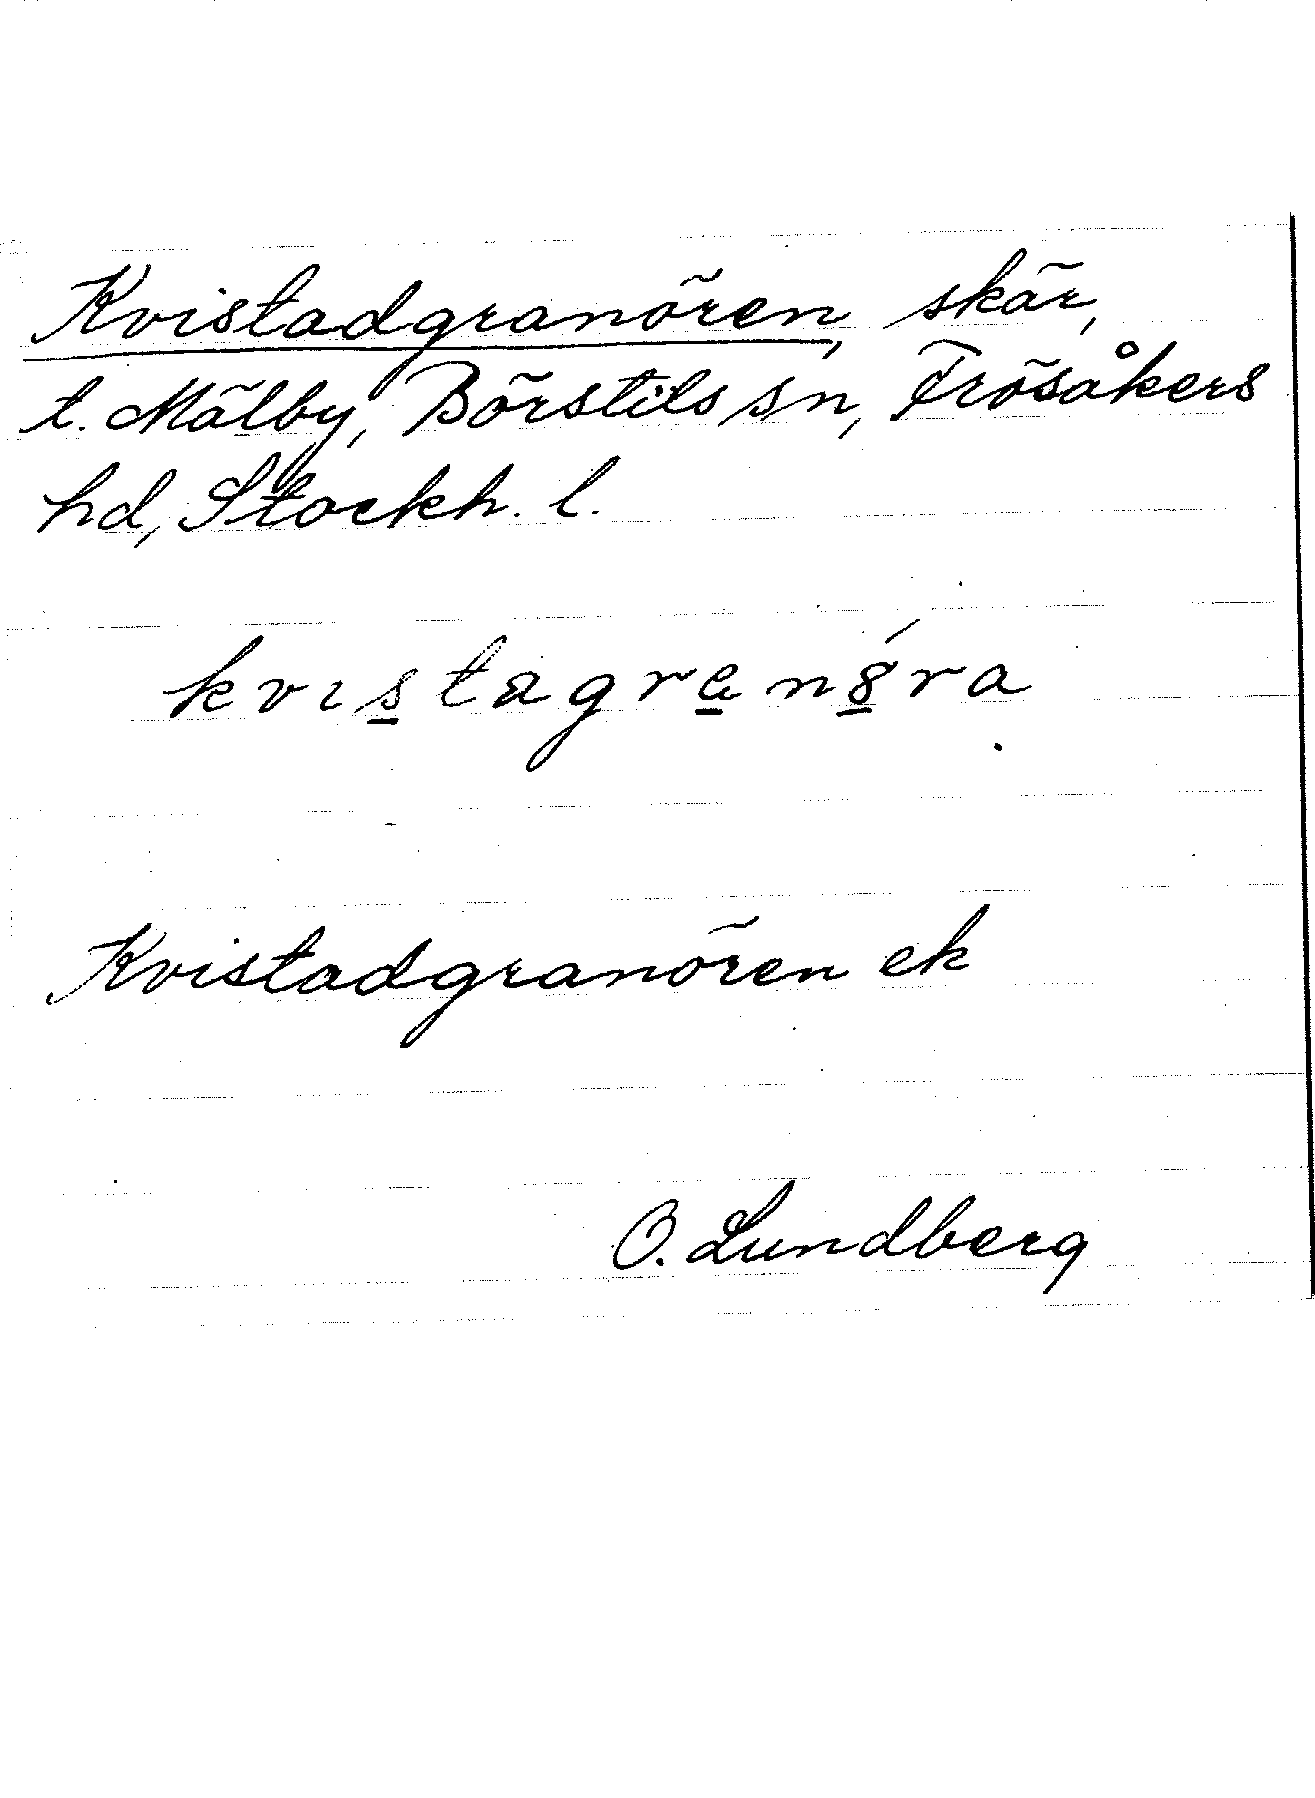 Kvistadgranören, skär,
t. Mälby, Börstils sn, Frösåkers
hd, Stockh. l.
Kvistadgranören ek
O. Lundberg